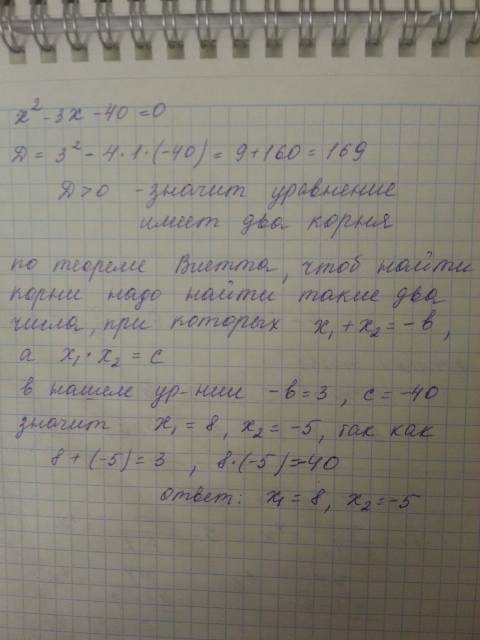 x² - 3x - 40 = 0
Д = 3² - 4·1·(-40) = 9 + 160 = 169
Д > 0 - значит уравнение
имеет два корня
по теореме Виетта, чтоб найти
корни надо найти такие два
числа, при которых x₁ + x₂ = -в,
а x₁ · x₂ = с
в нашем ур-нии -в = 3, с = -40
значит x₁ = 8, x₂ = -5, так как
8 + (-5) = 3, 8·(-5) = -40
ответ: x₁ = 8, x₂ = -5